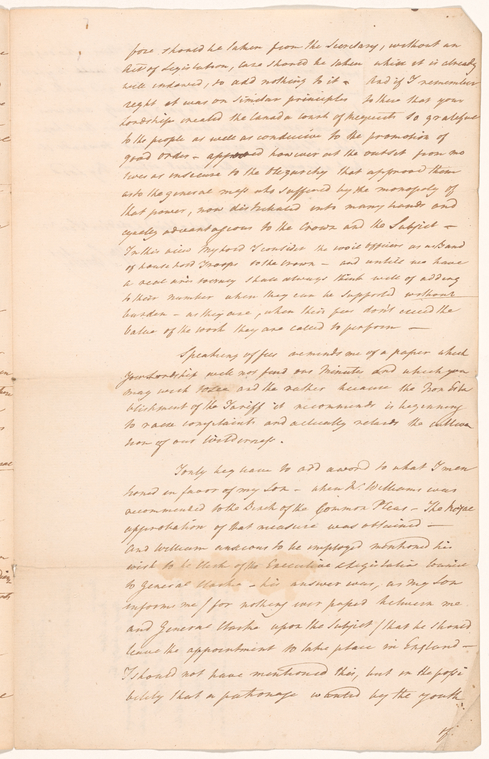 fore should be taken from the Secretary, without an
Act of Legislation, care should be taken where it is already
well endowed, to add nothing to it. And if I remember
right it was on similar principles to these that your
Lordship created the Canada Court of Requests so grateful
to the people as well as conducive to the promotion of
good order - opposed however at the outset from mo
tives as insecure to the Oligarchy that approved them
as to the general mass who suffered by the monopoly of
that power, now distributed into many hands and
equally advantageous to the Crown and the Subject -
In this view My Lord I consider the civil officers as a Band
of household Troops to the Crown - and until we have
a real aristocracy shall always think well of adding
to their number when they can be supported without
burden - as they are, when their fees don't exceed the
Value of the work they are called to perform -
Speaking of fees reminds me of a paper which
your Lordship will not find one Minute and which you
may wish to see and the rather because the Non Esta
blishment of the Tariff it recommends is beginning
to raise complaints and actually retards the cultiva
tion of our Wilderness.
I only beg leave to add a word to what I men
tioned in favor of my Son - when Mr Williams was
recommended to the Bench of the Common Pleas - The Royal
approbation of that measure was obtained -
And William anxious to be employed mentioned his
wish to be Clerk of the Executive & Legislative Council
to General Clarke - his answer was, as my Son
informs me / for nothing ever passed between me
and General Clarke upon the Subject / that he should
leave the appointment to take place in England -
I should not have mentioned this, but on the possi
bility that a patronage wanted by the youth